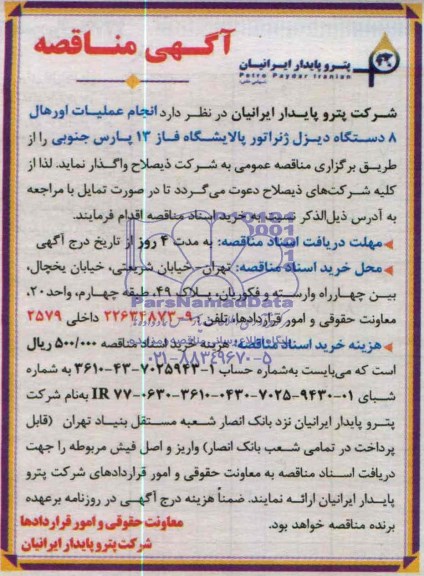 آگهی مناقصه
پترو پایدار ایرانیان
Petro Paydar Iranian
شرکت پترو پایدار ایرانیان در نظر دارد انجام عملیات اورهال
۸ دستگاه دیزل ژنراتور پالایشگاه فاز ۱۳ پارس جنوبی را از
طریق برگزاری مناقصه عمومی به شرکت ذیصلاح واگذار نماید. لذا از
کلیه شرکت‌های ذیصلاح دعوت می‌گردد تا در صورت تمایل با مراجعه
به آدرس ذیل‌الذکر نسبت به خرید اسناد مناقصه اقدام فرمایند.
◀مهلت دریافت اسناد مناقصه: به مدت ۴ روز از تاریخ درج آگهی
◀محل خرید اسناد مناقصه: تهران - خیابان شریعتی، خیابان یخچال،
بین چهارراه وارسته و فکوریان، پلاک ۴۹، طبقه چهارم، واحد ۲۰،
ParsNamadData
معاونت حقوقی و امور قراردادها، تلفن: ۹-۲۲۶۳۴۸۷۳ داخلی ۲۵۷۹
◀هزینه خرید اسناد مناقصه: هزینه خرید اسناد مناقصه ۵۰۰/۰۰۰ ریال
۰۲۱-۸۸۳۴۹۶۷۰-۵
است که می‌بایست به‌شماره حساب ۱-۷۰۲۵۹۴۳-۴۳-۳۶۱۰ به شماره
شبای ۰۱-۹۴۳۰-۷۰۲۵-۰۴۳۰-۳۶۱۰-۰۶۳۰-۷۷ IR به‌نام شرکت
پترو پایدار ایرانیان نزد بانک انصار شعبه مستقل بنیاد تهران (قابل
پرداخت در تمامی شعب بانک انصار) واریز و اصل فیش مربوطه را جهت
دریافت اسناد مناقصه به معاونت حقوقی و امور قراردادهای شرکت پترو
پایدار ایرانیان ارائه نمایند. ضمناً هزینه درج آگهی در روزنامه برعهده
برنده مناقصه خواهد بود.
معاونت حقوقی و امور قراردادها
شرکت پترو پایدار ایرانیان